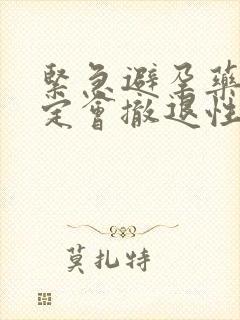 緊急避孕藥
定會撤退性
莫扎特